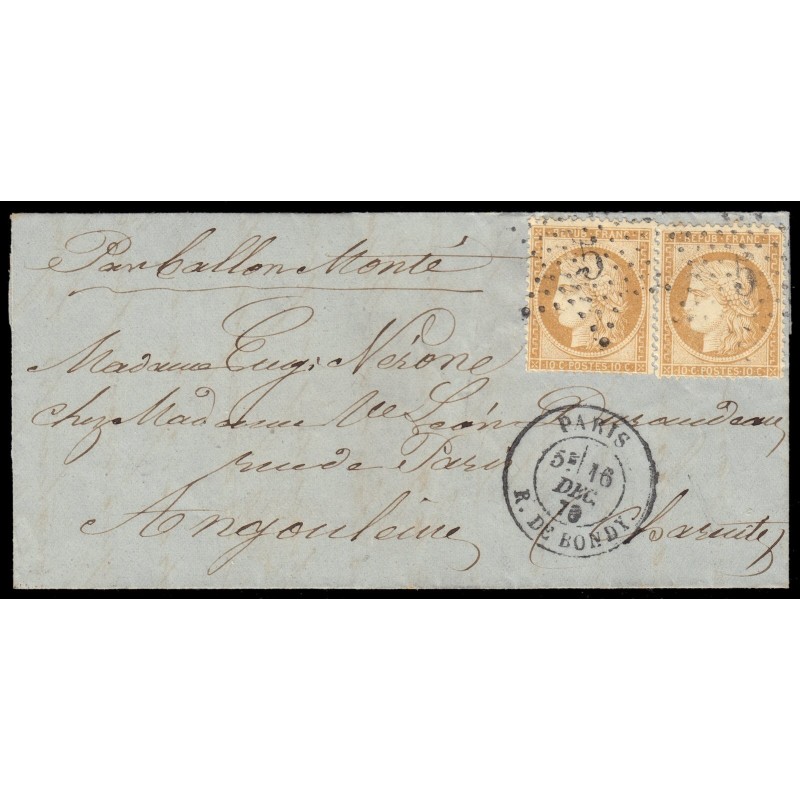 REPUB. FRANC.
REPUB. FRANC.
5
5
10 C. POSTES 10 C.
10 C. POSTES 10 C.
Par Ballon Monté
Madame Eug. Nérone
chez Madame Ve Léon
rue de Paris
Angoulême
Charente
PARIS
5E 16
DEC.
70
R. DE BONDY.